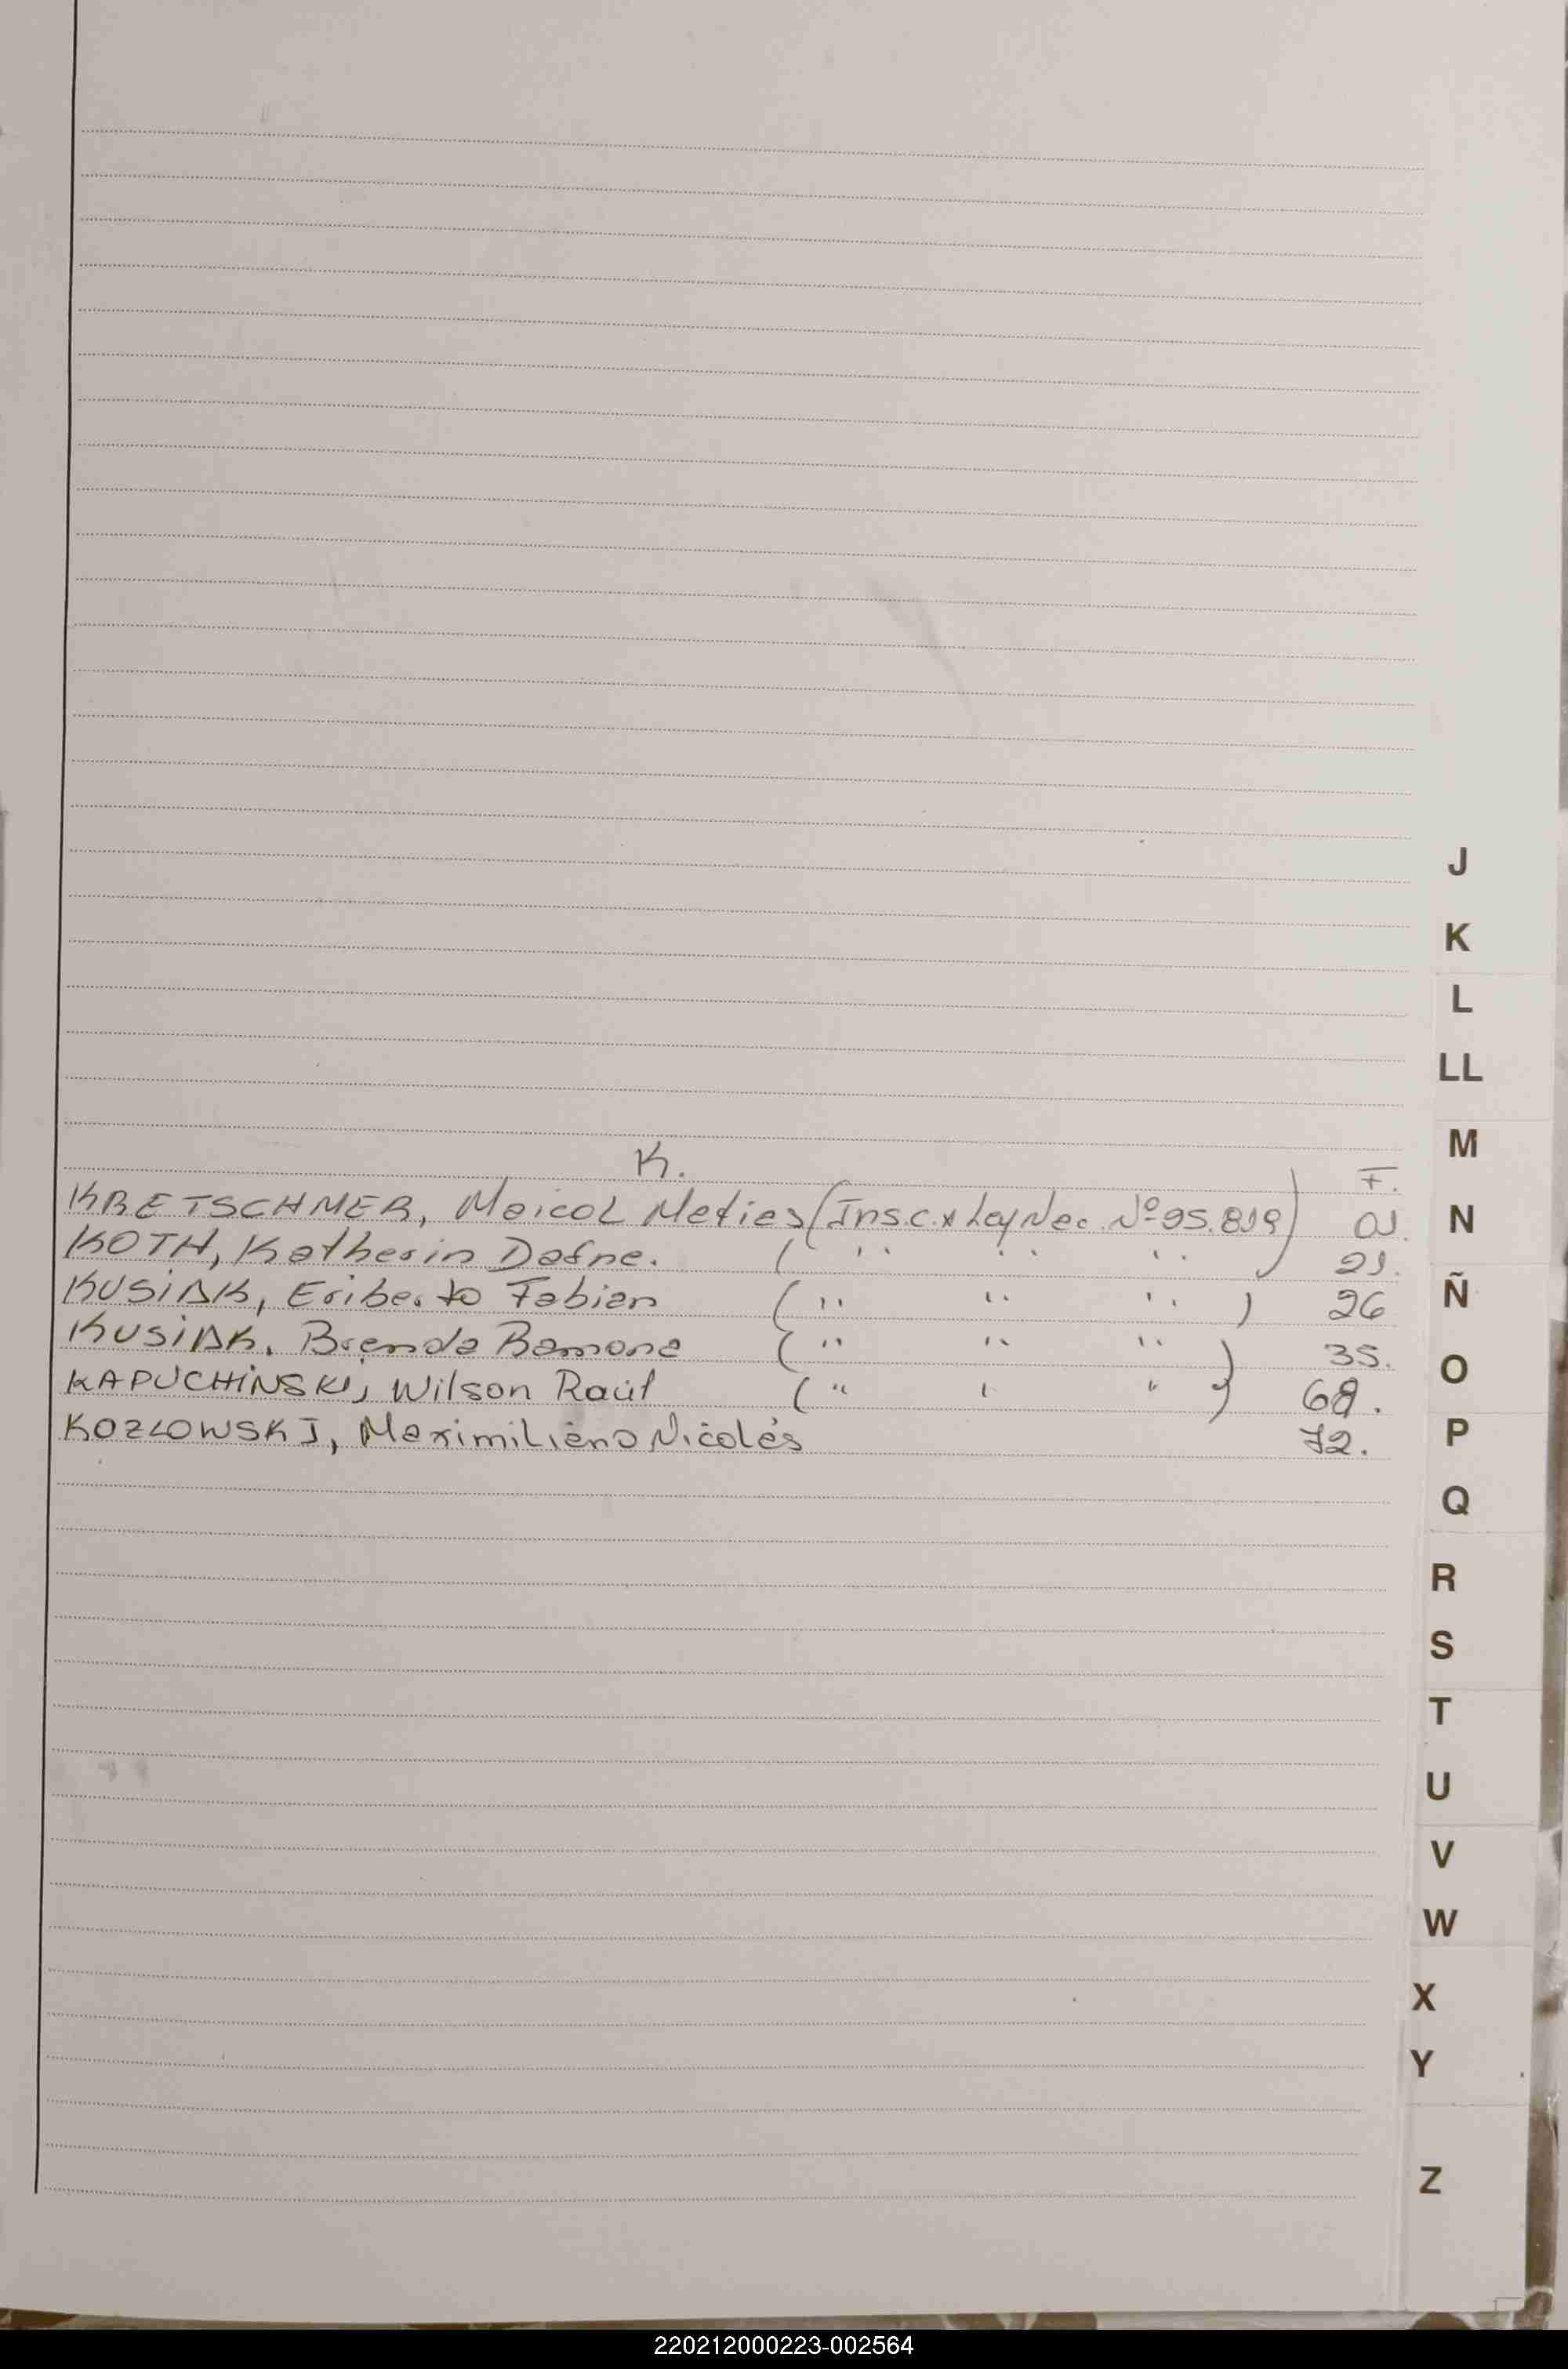 K.
F.
KRETSCHMER, Maicol Matias (Insc. x Ley Nac. Nº 25.819) 01.
KOTH, Katherin Dafne. ( " " " ) 21.
KUSIAK, Eriberto Fabian ( " " " ) 26
KUSIAK, Brenda Ramona ( " " " ) 35.
KAPUCHINSKI, Wilson Raúl ( " " " ) 68.
KOZLOWSKI, Maximiliano Nicolás 72.
J
K
L
LL
M
N
Ñ
O
P
Q
R
S
T
U
V
W
X
Y
Z
220212000223-002564